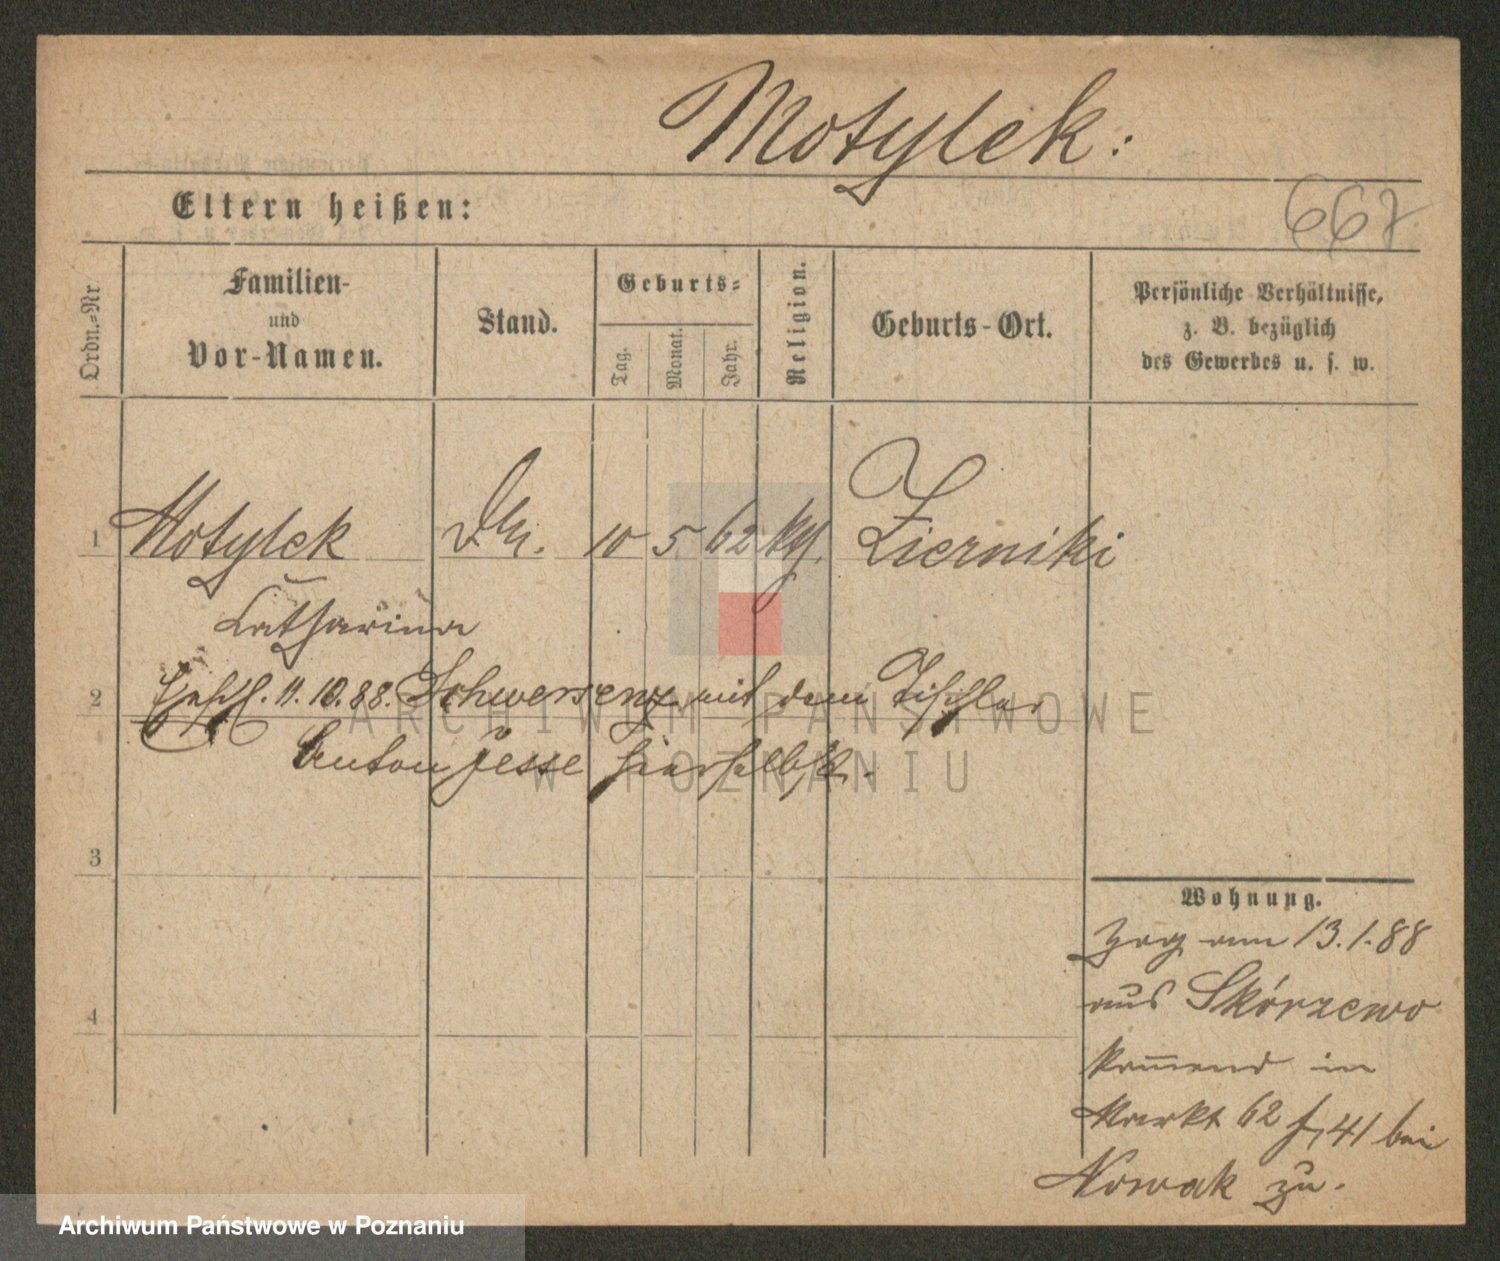 Motylek:
Eltern heißen:
667
Ordn.=Nr.
Familien-
und
Vor-Namen.
Stand.
Geburts=
Tag.
Monat.
Jahr.
Religion.
Geburts-Ort.
Persönliche Verhältnisse,
z. B. bezüglich
des Gewerbes u. s. w.
1 Motylek 10 5 62 kth. Zierniki
Catharina
2 11.10.88. Schwersenz mit dem Tischler
Anton Jesse hierselbst.
3
Wohnung.
zog am 13.1.88
aus Skórzewo
4
kom̅end in
Markt 62 41 bei
Nowak zu.
ARCHIWUM PAŃSTWOWE
W POZNANIU
Archiwum Państwowe w Poznaniu